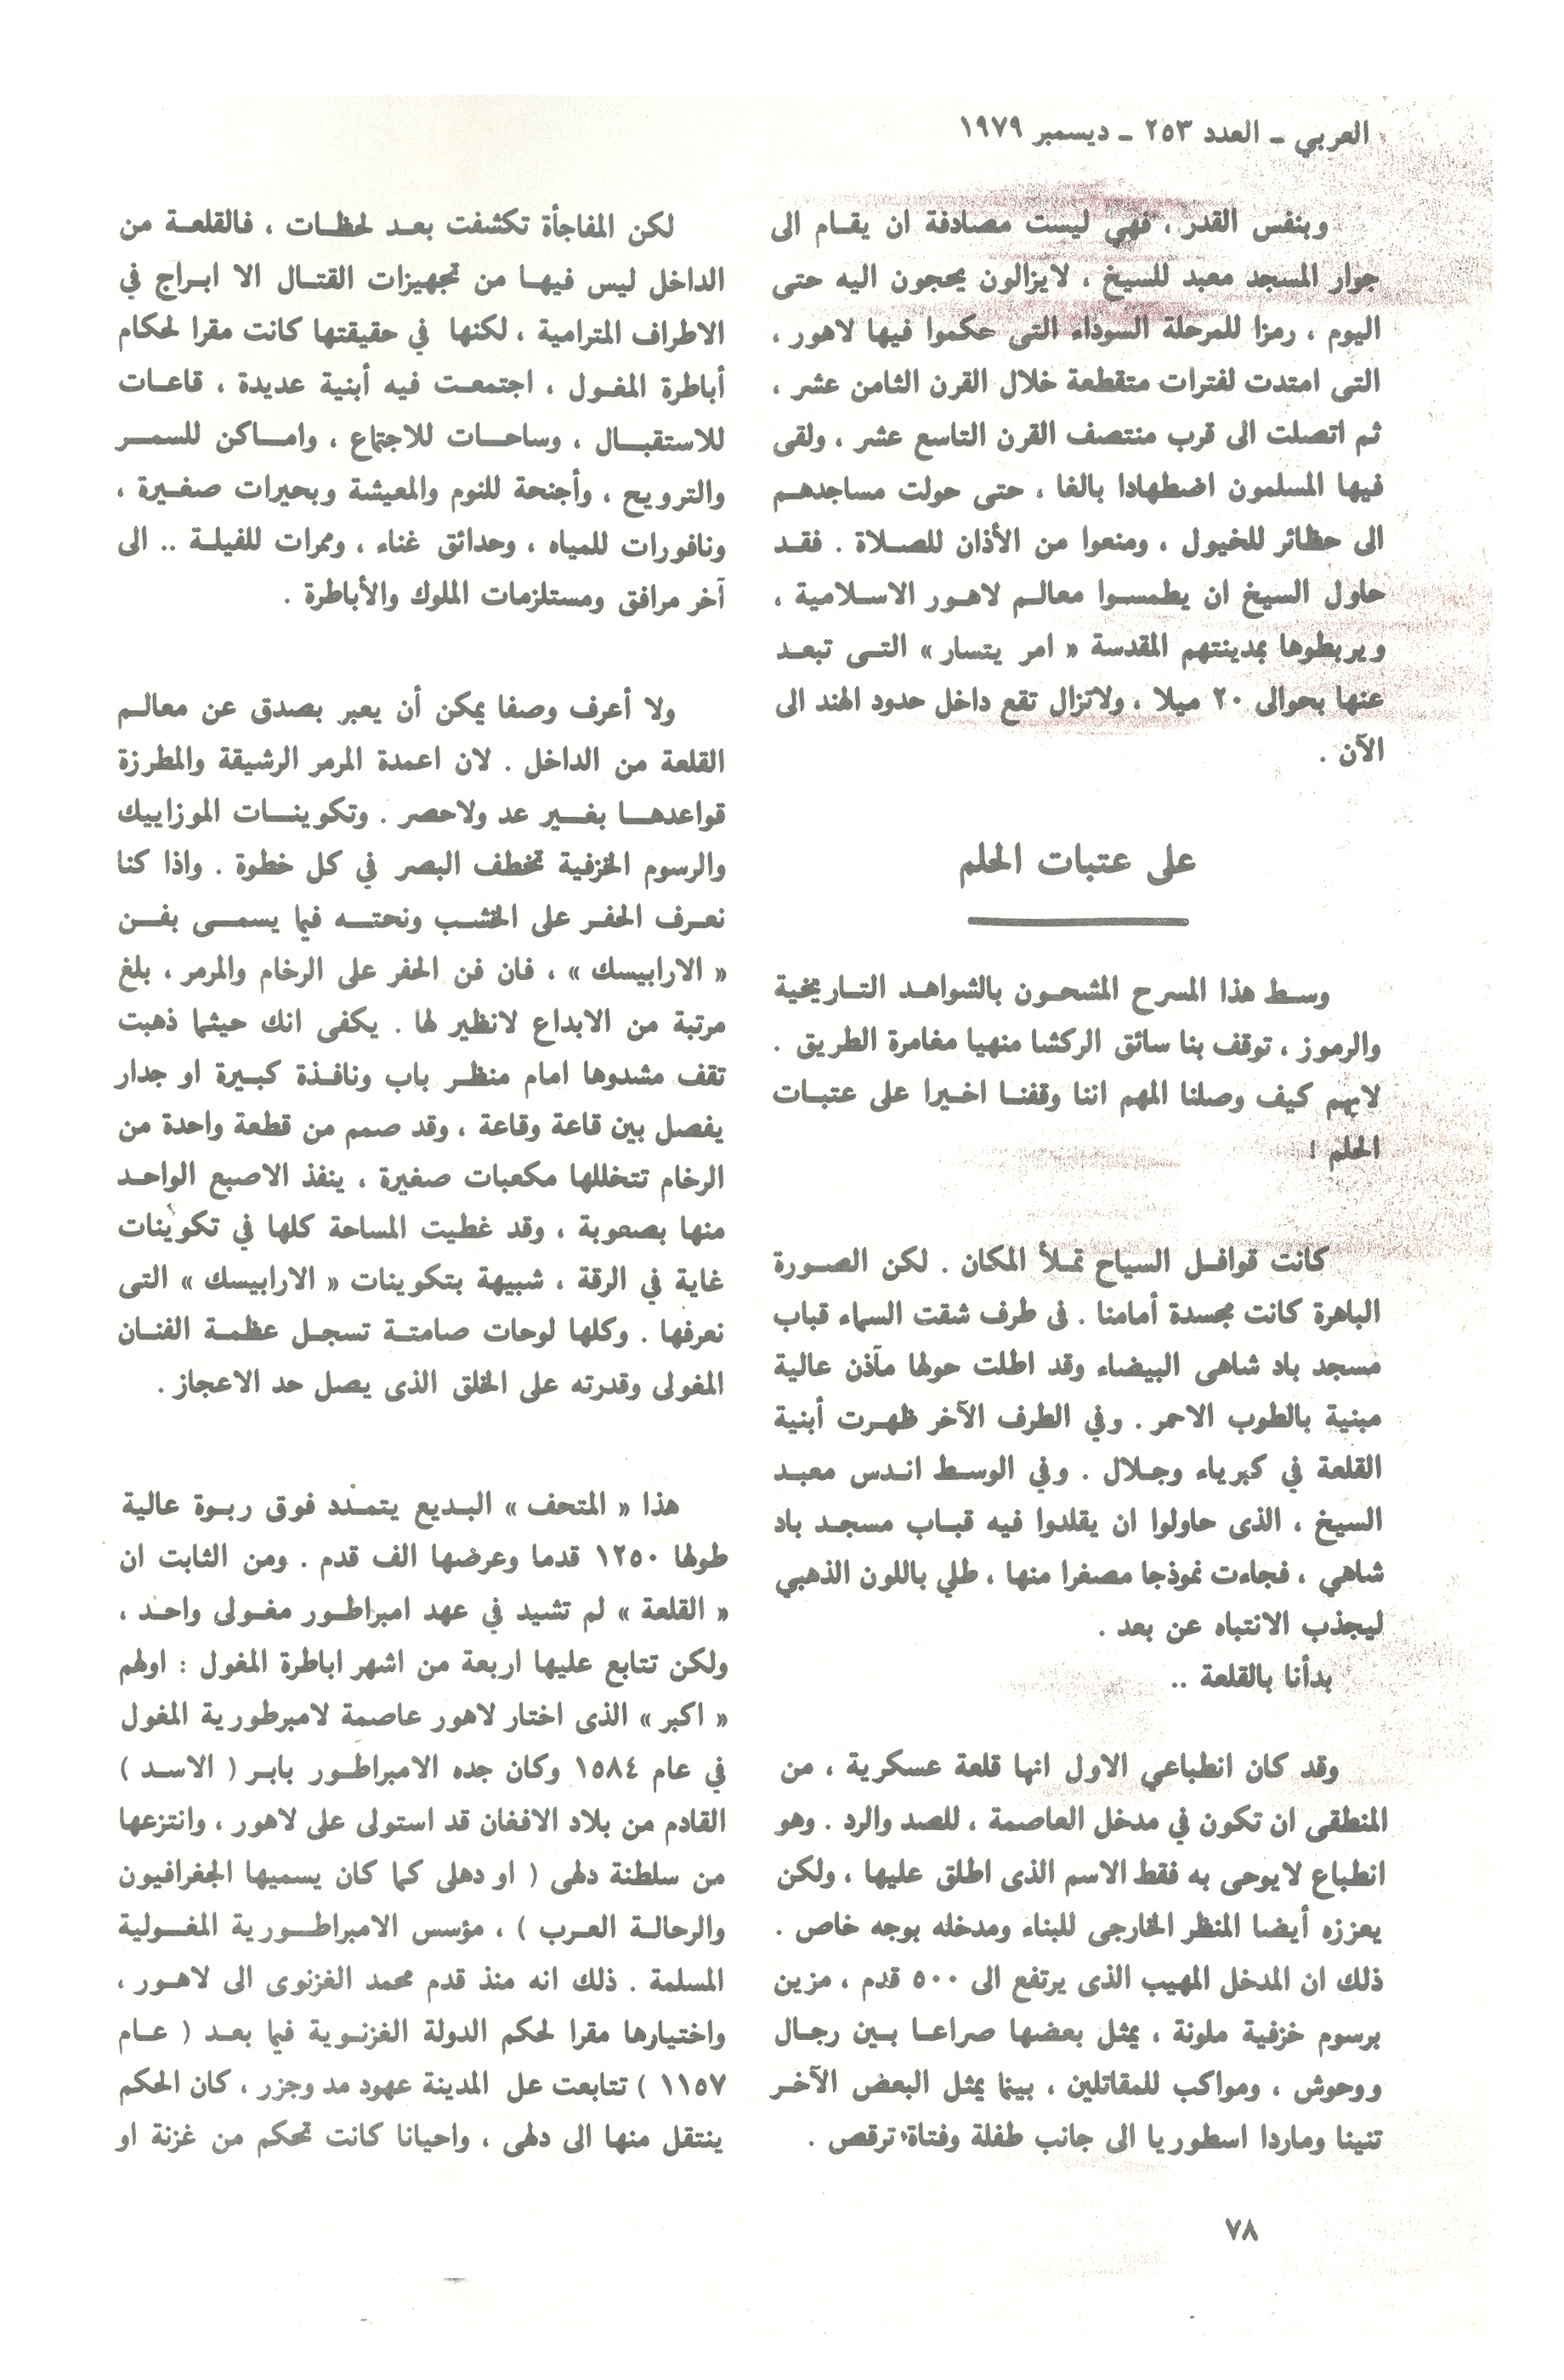 العربي ـ العدد ٢٥٣ ـ ديسمبر ١٩٧٩
وبنفس القدر ، فهي ليست مصادفة ان يقام الى
جوار المسجد معبد للسيخ ، لايزالون يحجون اليه حتى
اليوم ، رمزا للمرحلة السوداء التى حكموا فيها لاهور ،
التى امتدت لفترات متقطعة خلال القرن الثامن عشر ،
ثم اتصلت الى قرب منتصف القرن التاسع عشر ، ولقى
فيها المسلمون اضطهادا بالغا ، حتى حولت مساجدهم
الى حظائر للخيول ، ومنعوا من الأذان للصلاة . فقد
حاول السيخ ان يطمسوا معالم لاهور الاسلامية ،
ويربطوها بمدينتهم المقدسة « امر يتسار » التى تبعد
عنها بحوالى ٢٠ ميلا ، ولاتزال تقع داخل حدود الهند الى
الآن .
على عتبات الحلم
وسط هذا المسرح المشحون بالشواهد التاريخية
والرموز ، توقف بنا سائق الركشا منهيا مغامرة الطريق .
لايهم كيف وصلنا المهم اننا وقفنا اخيرا على عتبات
الحلم !
كانت قوافل السياح تملأ المكان . لكن الصورة
الباهرة كانت مجسدة أمامنا . فى طرف شقت السماء قباب
مسجد باد شاهى البيضاء وقد اطلت حولها مآذن عالية
مبنية بالطوب الاحمر . وفي الطرف الآخر ظهرت أبنية
القلعة في كبرياء وجلال . وفي الوسط اندس معبد
السيخ ، الذى حاولوا ان يقلدوا فيه قباب مسجد باد
شاهي ، فجاءت نموذجا مصغرا منها ، طلي باللون الذهبي
ليجذب الانتباه عن بعد .
بدأنا بالقلعة ..
وقد كان انطباعي الاول انها قلعة عسكرية ، من
المنطقى ان تكون في مدخل العاصمة ، للصد والرد . وهو
انطباع لايوحى به فقط الاسم الذى اطلق عليها ، ولكن
يعززه أيضا المنظر الخارجى للبناء ومدخله بوجه خاص .
ذلك ان المدخل المهيب الذى يرتفع الى ٥٠٠ قدم ، مزين
برسوم خزفية ملونة ، يمثل بعضها صراعا بين رجال
ووحوش ، ومواكب للمقاتلين ، بينما يمثل البعض الآخر
تنينا وماردا اسطوريا الى جانب طفلة وفتاة ترقص .
لكن المفاجأة تكشفت بعد لحظات ، فالقلعة من
الداخل ليس فيها من تجهيزات القتال الا ابراج في
الاطراف المترامية ، لكنها في حقيقتها كانت مقرا لحكام
أباطرة المغول ، اجتمعت فيه أبنية عديدة ، قاعات
للاستقبال ، وساحات للاجتماع ، واماكن للسمر
والترويح ، وأجنحة للنوم والمعيشة وبحيرات صغيرة ،
ونافورات للمياه ، وحدائق غناء ، وممرات للفيلة .. الى
آخر مرافق ومستلزمات الملوك والأباطرة .
ولا أعرف وصفا يمكن أن يعبر بصدق عن معالم
القلعة من الداخل . لان اعمدة المرمر الرشيقة والمطرزة
قواعدها بغير عد ولاحصر . وتكوينات الموزاييك
والرسوم الخزفية تخطف البصر في كل خطوة . واذا كنا
نعرف الحفر على الخشب ونحته فيما يسمى بفن
« الارابيسك » ، فان فن الحفر على الرخام والمرمر ، بلغ
مرتبة من الابداع لانظير لها . يكفى انك حيثما ذهبت
تقف مشدوها امام منظر باب ونافذة كبيرة او جدار
يفصل بين قاعة وقاعة ، وقد صمم من قطعة واحدة من
الرخام تتخللها مكعبات صغيرة ، ينفذ الاصبع الواحد
منها بصعوبة ، وقد غطيت المساحة كلها في تكوينات
غاية في الرقة ، شبيهة بتكوينات « الارابيسك » التى
نعرفها . وكلها لوحات صامتة تسجل عظمة الفنان
المغولى وقدرته على الخلق الذى يصل حد الاعجاز .
هذا « المتحف » البديع يتمدد فوق ربوة عالية
طولها ١٢٥٠ قدما وعرضها الف قدم . ومن الثابت ان
« القلعة » لم تشيد في عهد امبراطور مغولى واحد ،
ولكن تتابع عليها اربعة من اشهر اباطرة المغول : اولهم
« اكبر » الذى اختار لاهور عاصمة لامبرطورية المغول
في عام ١٥٨٤ وكان جده الامبراطور بابر ( الاسد )
القادم من بلاد الافغان قد استولى على لاهور ، وانتزعها
من سلطنة دلهى ( او دهلى كما كان يسميها الجغرافيون
والرحالة العرب ) ، مؤسس الامبراطورية المغولية
المسلمة . ذلك انه منذ قدم محمد الغزنوى الى لاهور ،
واختيارها مقرا لحكم الدولة الغزنوية فيما بعد ( عام
١١٥٧ ) تتابعت عل المدينة عهود مد وجزر ، كان الحكم
ينتقل منها الى دلهى ، واحيانا كانت تحكم من غزنة او
٧٨